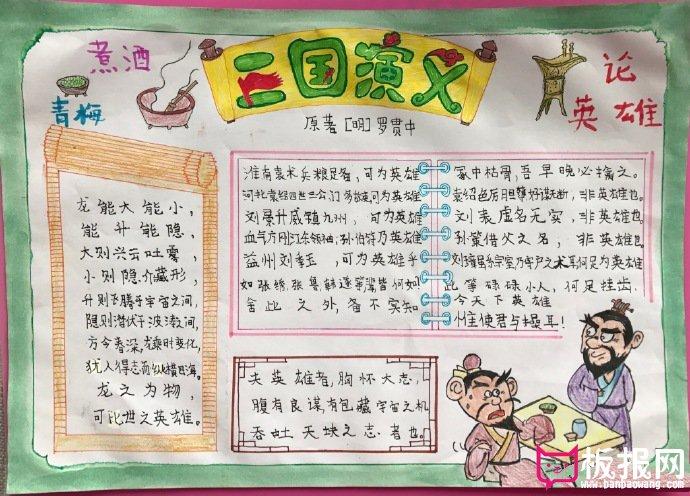 三国演义
原著[明]罗贯中
煮酒
青梅
论
英雄
龙能大能小,
能升能隐,
大则兴云吐雾,
小则隐介藏形,
升则飞腾于宇宙之间,
隐则潜伏于波涛之间,
方今春深,龙乘时变化,
犹人得志而纵横四海。
龙之为物,
可比世之英雄。
淮南袁术兵粮足备,可为英雄
河北袁绍四世三公,门多故吏可为英雄
刘景升威镇九州,可为英雄
血气方刚江东领袖孙伯符乃英雄
益州刘季玉,可为英雄乎
如张绣,张鲁,韩遂等辈皆何如
舍此之外,备不实知
冢中枯骨,吾早晚必擒之。
袁绍色厉胆薄好谋无断,非英雄也。
刘表虚名无实,非英雄也
孙策借父之名,非英雄也
刘璋虽系宗室乃守户之犬耳何足为英雄
此等碌碌小人,何足挂齿
今天下英雄
惟使君与操耳!
夫英雄者,胸怀大志,
腹有良谋,有包藏宇宙之机
吞吐天地之志者也。
板报网
www.banbaowang.com